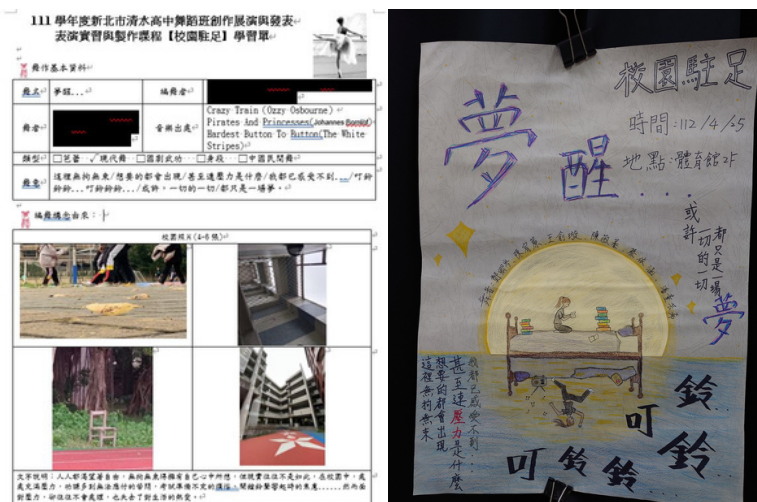 111 學年度新北市清水高中舞蹈班創作展演與發表
表演實習與製作課程【校園駐足】學習單
舞作基本資料
舞名 夢醒... 編舞者
舞者 音樂出處 Crazy Train (Ozzy Osbourne)
Pirates And Princesses(Johannes
Hardest Button To Button(The White
Stripes)
類型 □芭蕾 ✓現代舞 □國劇武功 □身段 □中國民間舞
舞意 這裡無拘無束/想要的都會出現/甚至連壓力是什麼/我都已感受不到.../叮鈴
鈴鈴...叮鈴鈴鈴.../或許，一切的一切/都只是一場夢。
編舞構念由來：
校園照片(4-6 張)
文字說明：人人都渴望著自由，無拘無束得擁有自己心中所想，但現實往往不是如此，在校園中，處
對壓力，卻往往不會處理，也失去了對生活的熱愛。
校園駐足
時間:112/4/25
地點:體育館2F
夢
醒...
或許
一切的一切
都只是一場
夢
我都已感受不到...
甚至連壓力是什麼
想要的都會出現
這裡無拘無束
叮鈴...
叮鈴鈴鈴